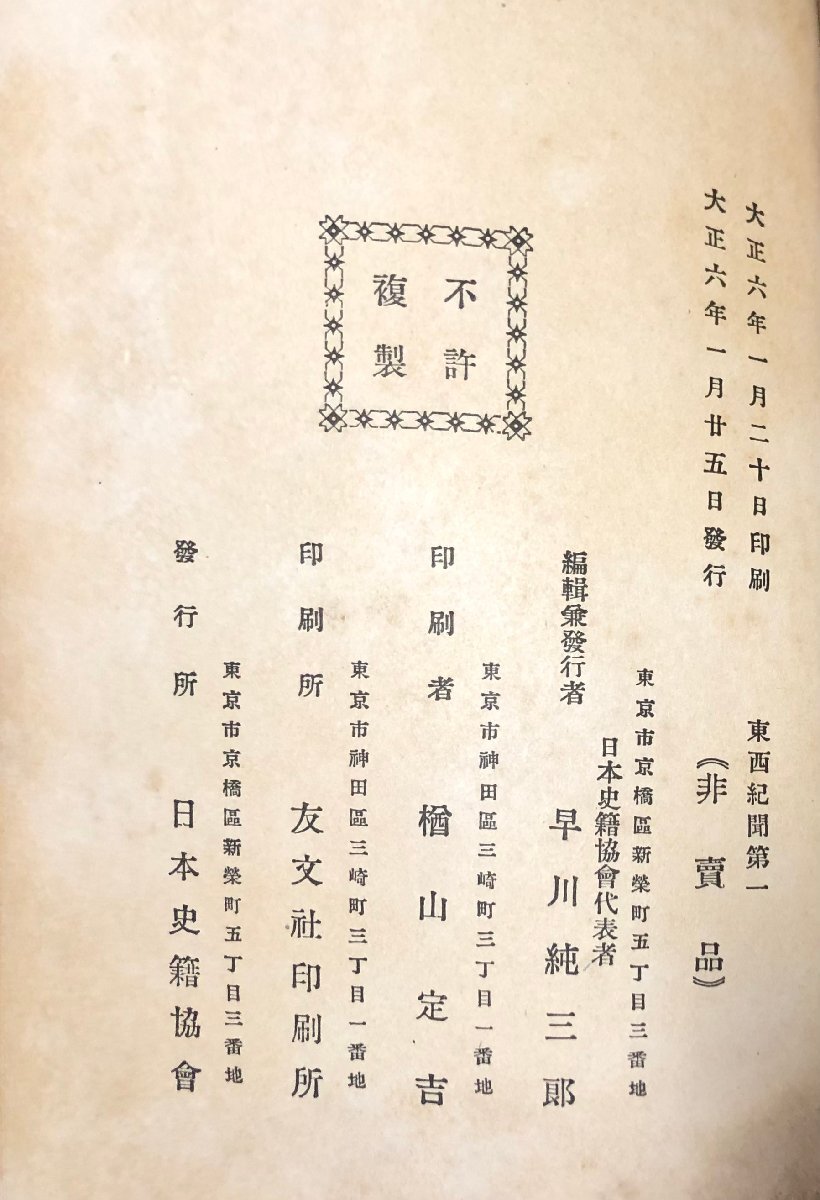 大正六年一月二十日印刷
大正六年一月廿五日發行
東西紀聞第一
《非賣品》
不許
複製
東京市京橋區新榮町五丁目三番地
日本史籍協會代表者
編輯兼發行者 早川純三郎
東京市神田區三崎町三丁目一番地
印刷者 楢山定吉
東京市神田區三崎町三丁目一番地
印刷所 友文社印刷所
東京市京橋區新榮町五丁目三番地
發行所 日本史籍協會